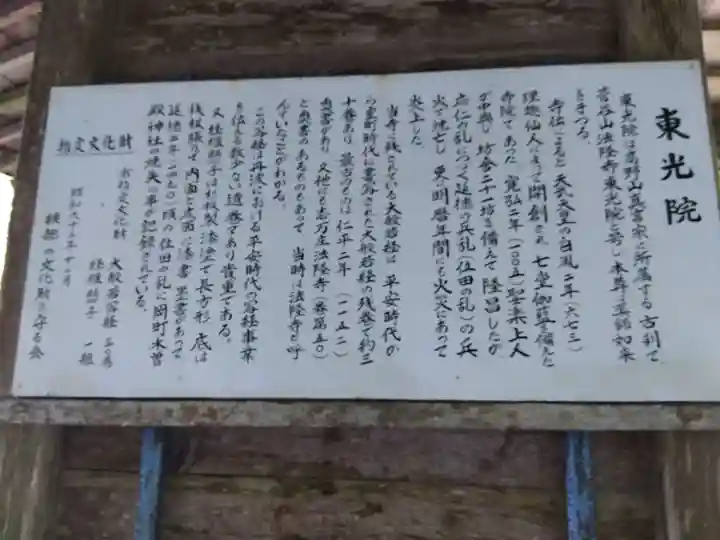 東光院
東光院は高野山真言宗に所属する古刹で
菅谷山法隆寺東光院と号し本尊は薬師如来
をまつる。
寺伝によると天武天皇の白鳳二年(六七三)
理趣仙人によって開創され七堂伽藍を備えた
寺院であった 寛弘二年(一〇〇五)聖楽上人
が中興し 坊舎二十一坊を備えて隆昌したが
応仁の乱につづく延徳の兵乱(位田の乱)の兵
火で焼亡し 更に明暦年間にも火災にあって
炎上した。
当寺に残されている大般若経は 平安時代か
ら室町時代に書写された大般若経の残巻で約三
十巻あり 最古のものは仁平二年(一一五二)
奥書があり 又他にも志万庄法隆寺(巻第五〇)
と奥書のあるものもあって 当時は法隆寺と呼
んでいたことがわかる。
この写経は丹波における平安時代の写経事業
を伝える数少ない遺巻であり貴重である。
又 経櫃 は 板製 漆塗で長方形 底は
桟板張りで 内面と底面に漆書 墨書があって
延徳二年(一四九〇)頃の位田の乱に岡町木曽
殿神社の焼失の事が記録されている。
指定文化財
市指定文化財
大般若写経
経櫃 一組
昭和六十年十月
綾部の文化財を守る会